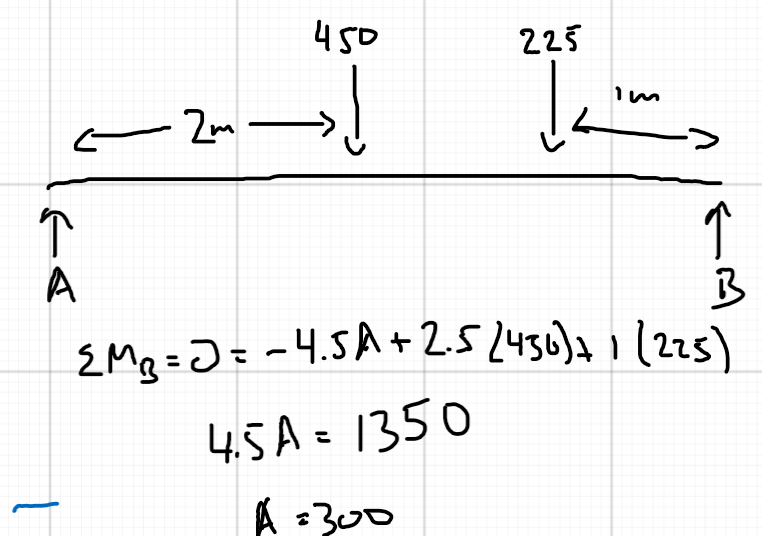 450 225
2m 1m
A B
ΣM_B = 0 = -4.5A + 2.5(450) + 1(225)
4.5A = 1350
A = 300